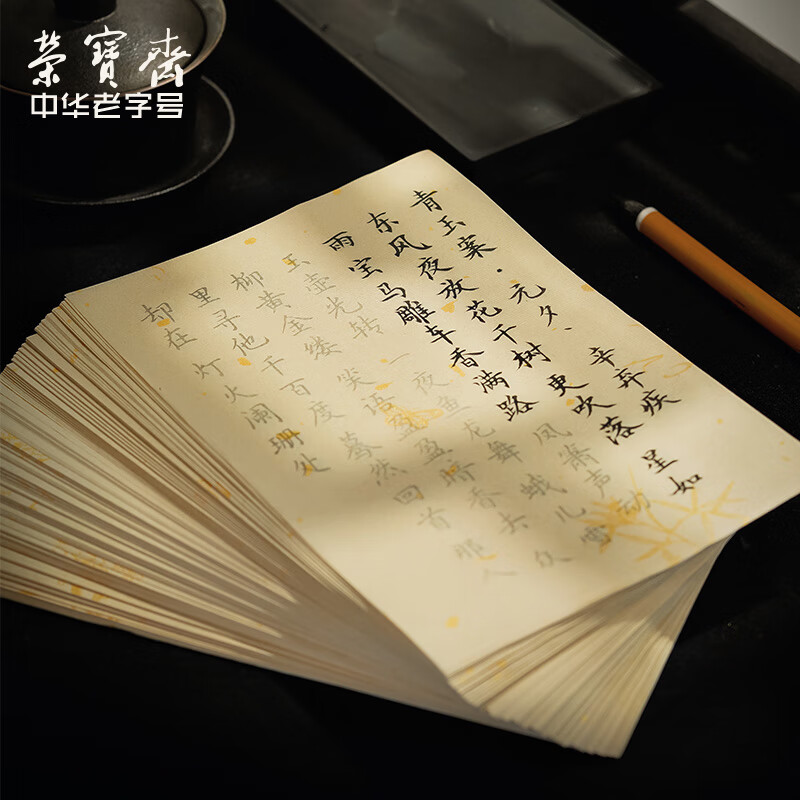 荣宝斋
中华老字号
青玉案·元夕、辛弃疾
东风夜放花千树更吹落星如
雨宝马雕车香满路凤箫声动
玉壶光转一夜鱼龙舞蛾儿雪
柳黄金缕笑语盈盈暗香去众
里寻他千百度蓦然回首那人
却在灯火阑珊处